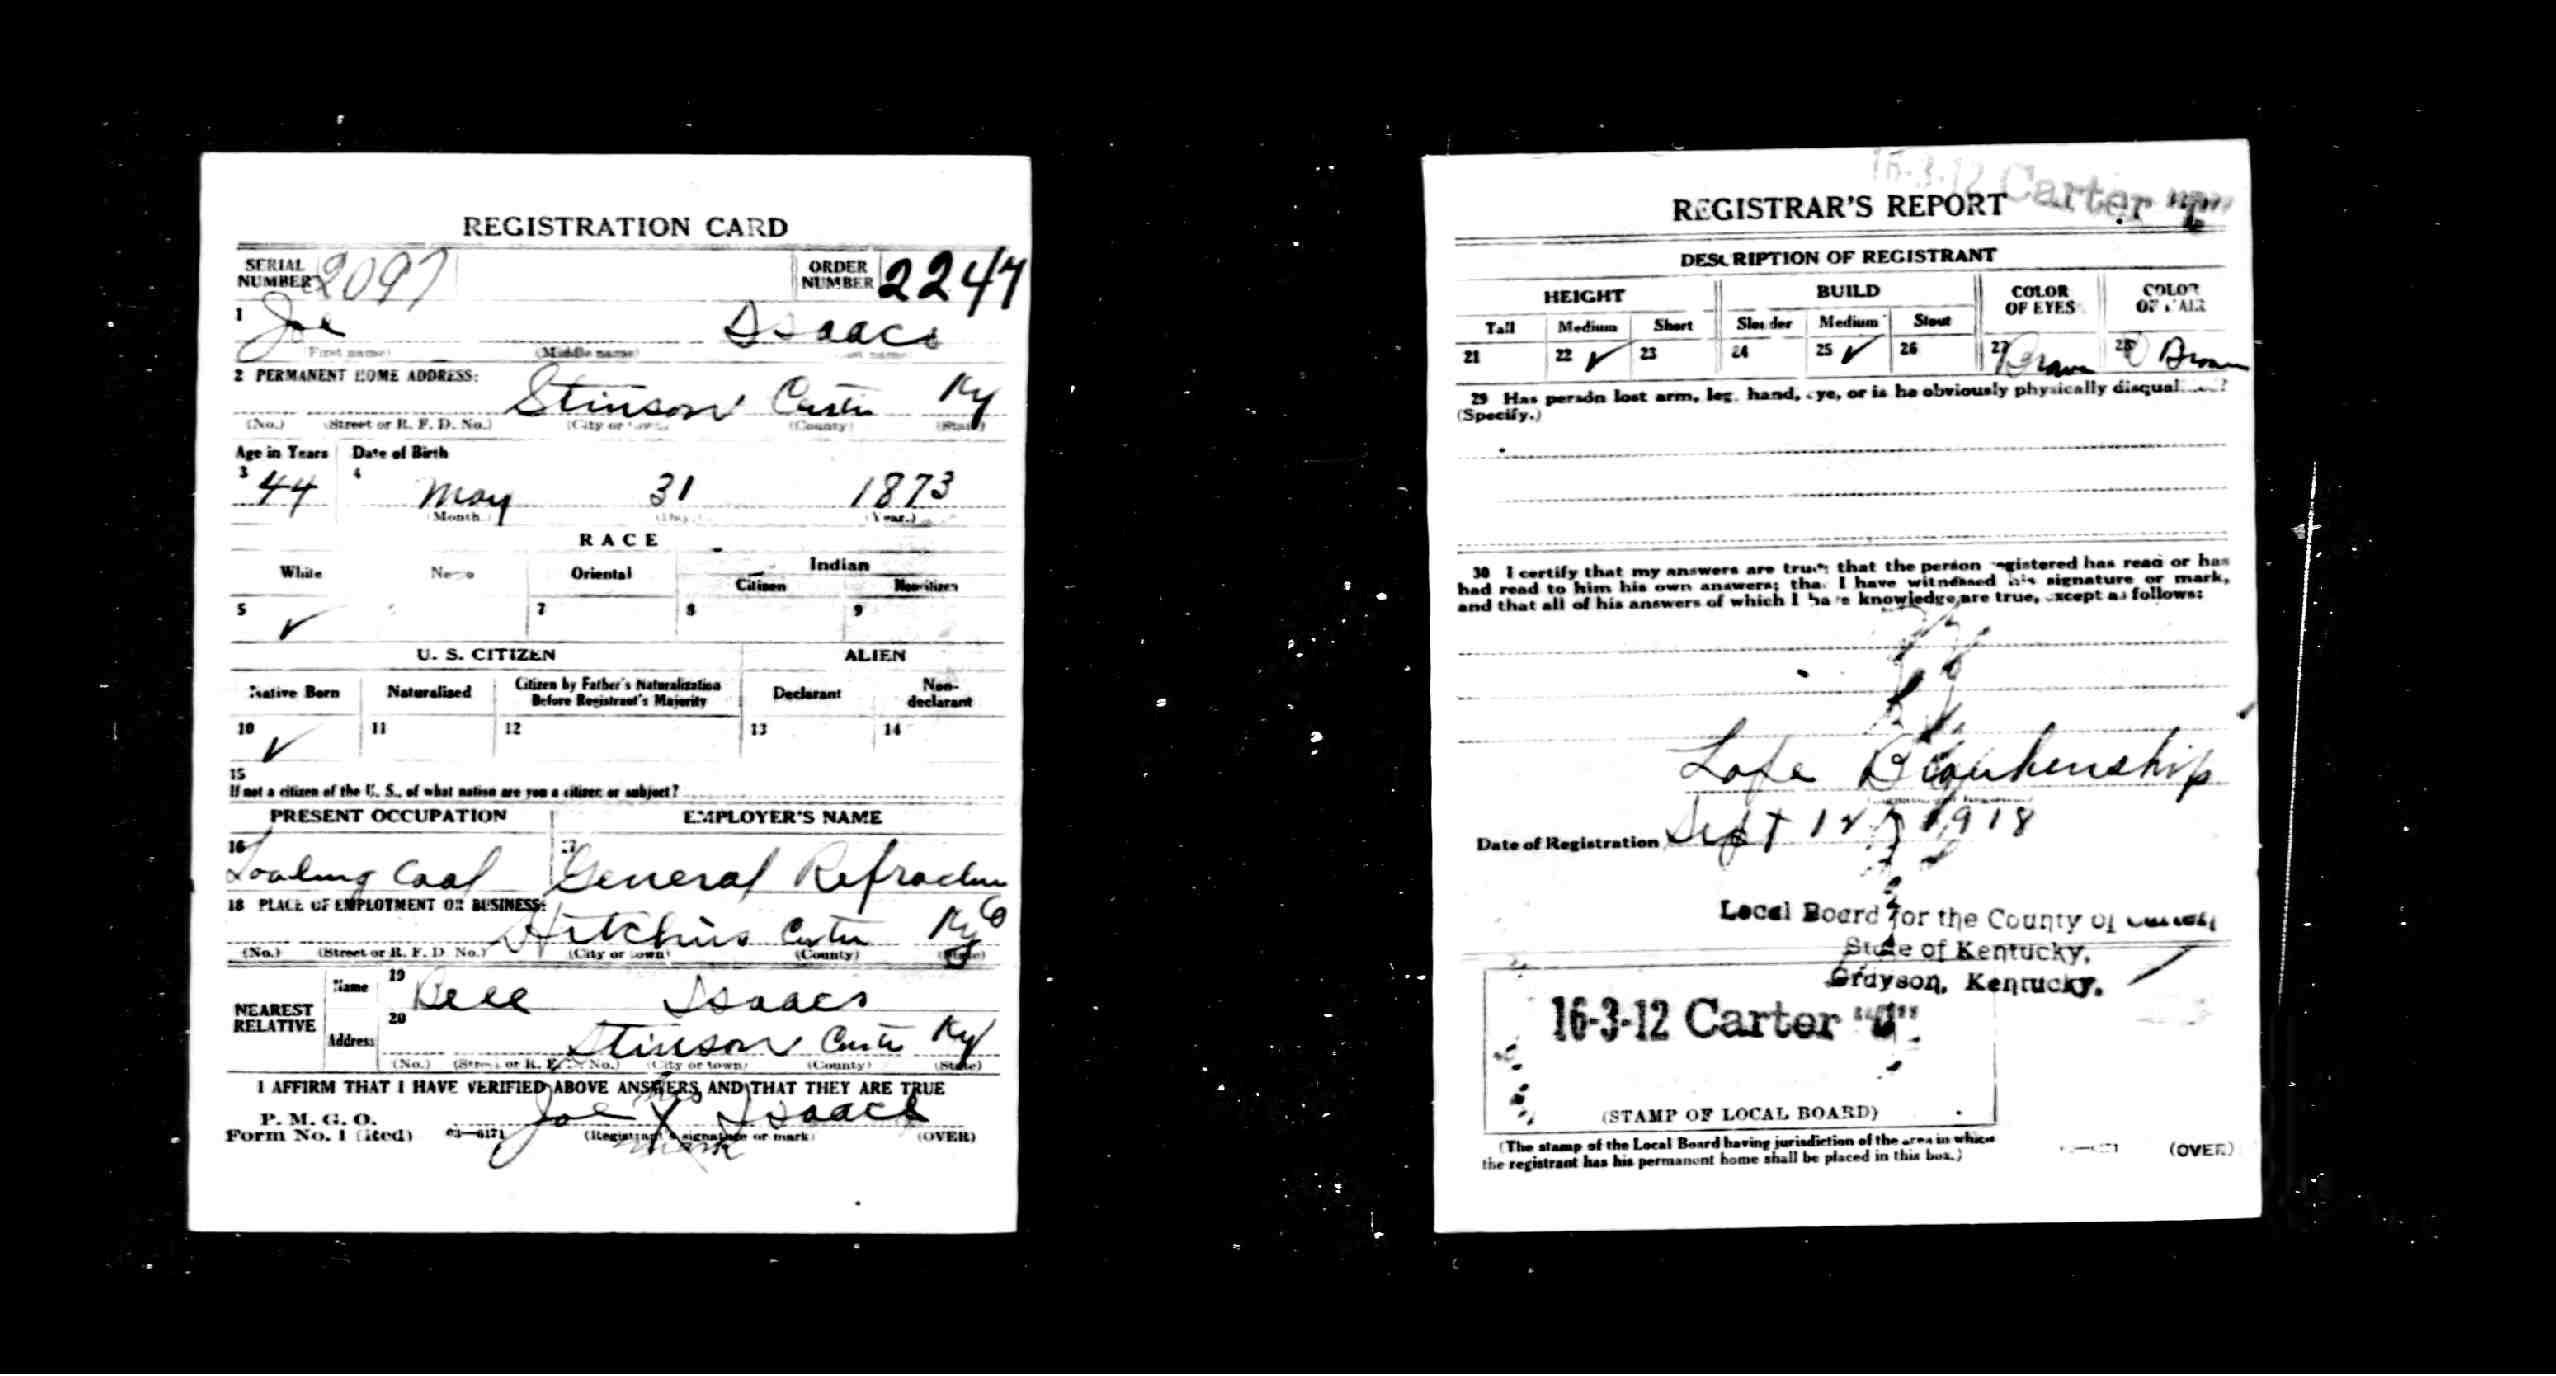 REGISTRATION CARD
SERIAL NUMBER 2097 ORDER NUMBER 2247
1 Joe Isaacs
(First name) (Middle name) (Last name)
2 PERMANENT HOME ADDRESS:
Stinson Carter Ky
(No.) (Street or R. F. D. No.) (City or town) (County) (State)
Age in Years Date of Birth
3 44 4 May 31 1873
(Month.) (Day.) (Year.)
RACE
White Negro Oriental Indian
Citizen Noncitizen
5 ✓ 7 8 9
U. S. CITIZEN ALIEN
Native Born Naturalized Citizen by Father's Naturalization Before Registrant's Majority Declarant Non-declarant
10 ✓ 11 12 13 14
15
If not a citizen of the U. S., of what nation are you a citizen or subject?
PRESENT OCCUPATION EMPLOYER'S NAME
16 Loading Coal 17 General Refractories
Co
18 PLACE OF EMPLOYMENT OR BUSINESS:
Hitchins Carter Ky
(No.) (Street or R. F. D. No.) (City or town) (County) (State)
NEAREST RELATIVE
Name 19 Bell Isaacs
Address 20 Stinson Carter Ky
(No.) (Street or R. F. D. No.) (City or town) (County) (State)
I AFFIRM THAT I HAVE VERIFIED ABOVE ANSWERS AND THAT THEY ARE TRUE
P. M. G. O.
Form No. 1 (Red) 03—6171 Joe his X mark Isaacs
(Registrant's signature or mark) (OVER)
16-3-12 Carter
REGISTRAR'S REPORT
DESCRIPTION OF REGISTRANT
HEIGHT BUILD COLOR OF EYES COLOR OF HAIR
Tall Medium Short Slender Medium Stout
21 22 ✓ 23 24 25 ✓ 26 27 Brown 28 Brown
29 Has person lost arm, leg, hand, eye, or is he obviously physically disqualified?
(Specify.)
30 I certify that my answers are true; that the person registered has read or has
had read to him his own answers; that I have witnessed his signature or mark,
and that all of his answers of which I have knowledge are true, except as follows:
Lafe Blankenship
Date of Registration Sept 12 1918
Local Board for the County of Carter,
State of Kentucky,
Grayson, Kentucky.
16-3-12 Carter
(STAMP OF LOCAL BOARD)
(The stamp of the Local Board having jurisdiction of the area in which
the registrant has his permanent home shall be placed in this box.)
(OVER)